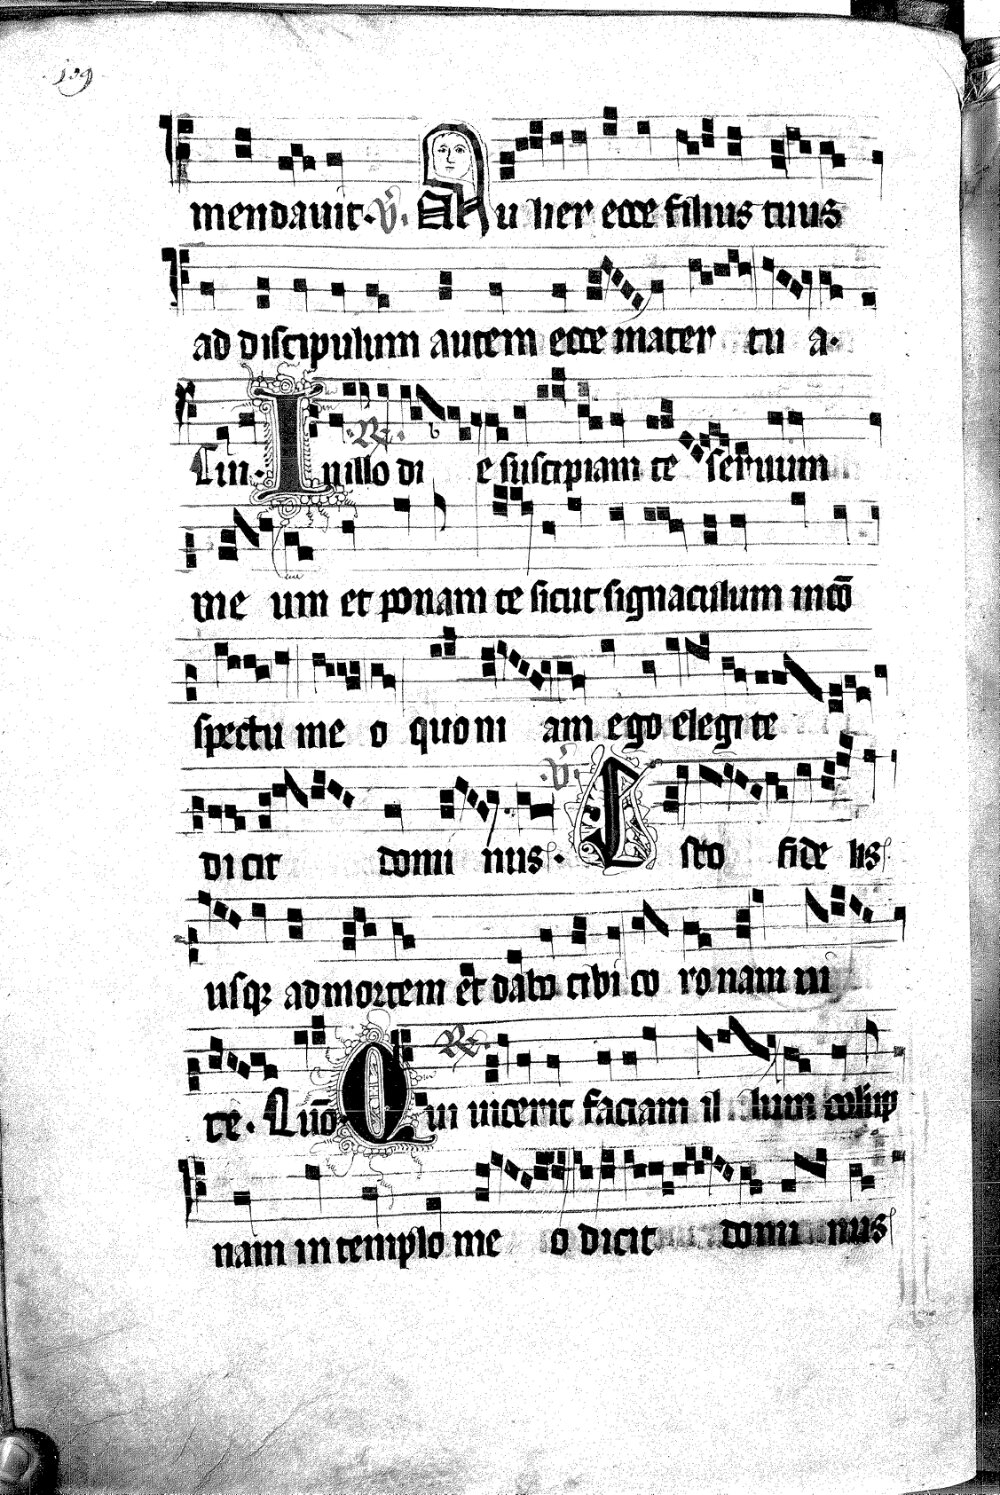 139
mendauit. V. Mu lier ecce filius tuus
ad discipulum autem ecce mater tu a.
Uin. R. In illo di e suscipiam te seruum
me um et ponam te sicut signaculum in cō
spectu me o quoni am ego elegi te
di cit domi nus. V. Esto fide lis
usq; ad mortem et dabo tibi co ronam ui
te. Quō R. Qui uicerit faciam il lum colūp
nam in templo me o dicit domi nus